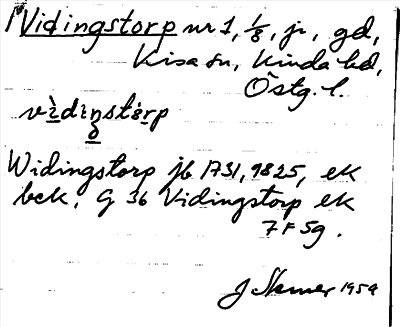 Vidingstorp nr 1, 1/8, jr, gd,
Kisa sn, Kinda hd,
Östg. l.
vìdiŋstórp
Widingstorp jb 1731, 1825, ek
bck, G 36 Vidingstorp ek
7 F 5g.
1959